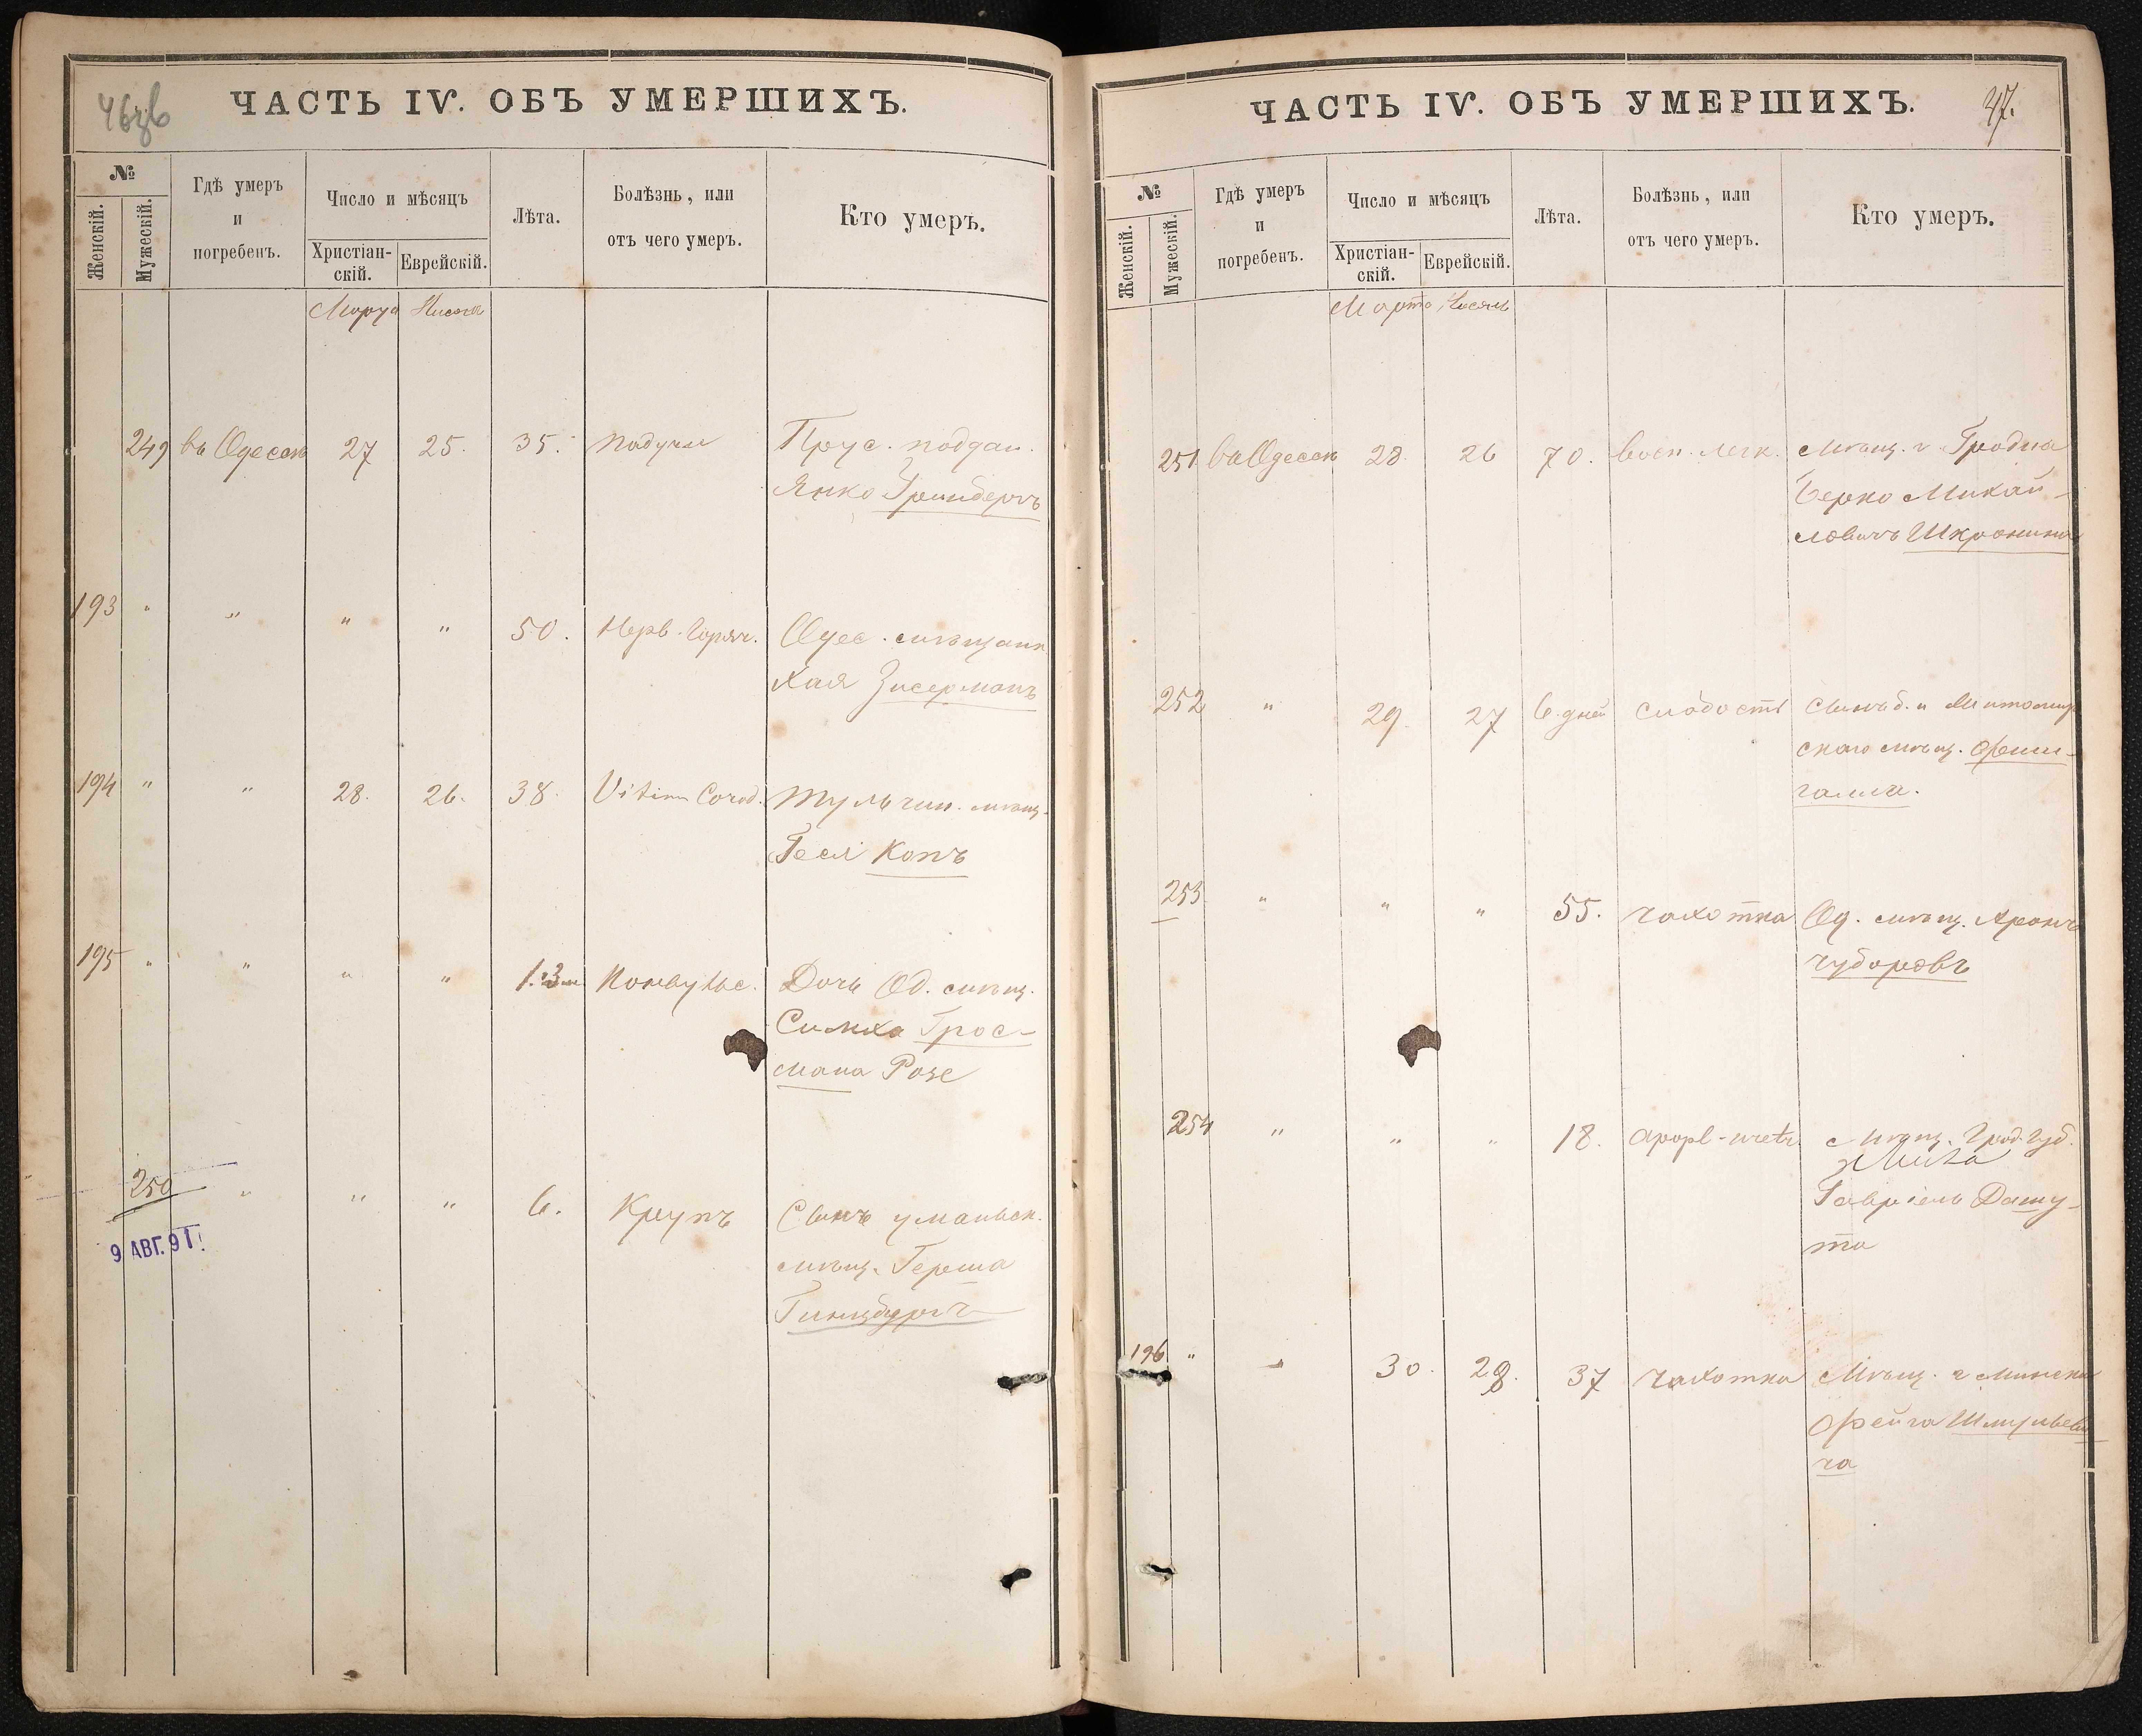 46зв
ЧАСТЬ IV. ОБЪ УМЕРШИХЪ.
№
Женскій.
Мужескій.
Гдѣ умеръ
и
погребенъ.
Число и мѣсяцъ
Христіан-
скій.
Еврейскій.
Лѣта.
Болѣзнь, или
отъ чего умеръ.
Кто умеръ.
Марта Нисонъ
249 въ Одессѣ 27 25. 35. падучая Прус. поддан.
Янко Гринбергъ
193 " " " " 50. Нерв. горяч. Одес. мѣщанк
Хая Зисерманъ
194 " " 28. 26. 38. Vitium Cord. Тульчин. мѣщ.
Геся Копъ
195 " " " " 1. 3 м. Конвульс. Дочь Од. мѣщ.
Симха Грос-
мана Розе
250 " " " 6. Крупъ Сынъ уманьск.
мѣщ. Герша
Гинцбургъ
9 АВГ. 91
ЧАСТЬ IV. ОБЪ УМЕРШИХЪ.
47.
№
Женскій.
Мужескій.
Гдѣ умеръ
и
погребенъ.
Число и мѣсяцъ
Христіан-
скій.
Еврейскій.
Лѣта.
Болѣзнь, или
отъ чего умеръ.
Кто умеръ.
Марта
251 въ Одессѣ 28. 26 70. Восп. легк. Мѣщ. г. Гродна
Берко Михай-
ловичъ
252 " 29. 27 6. дней слабость Сынъ
скаго мѣщ.
253 " " " 55. чахотка Од. мѣщ. Аронъ
Чуборовъ
254 " " " 18. apopl - Мѣщ. Грод. губ.
Гавріель Дашу-
та
196 " " 30. 28. 37 чахотка Мѣщ. г Минска
Фейга Шмульеви-
ча